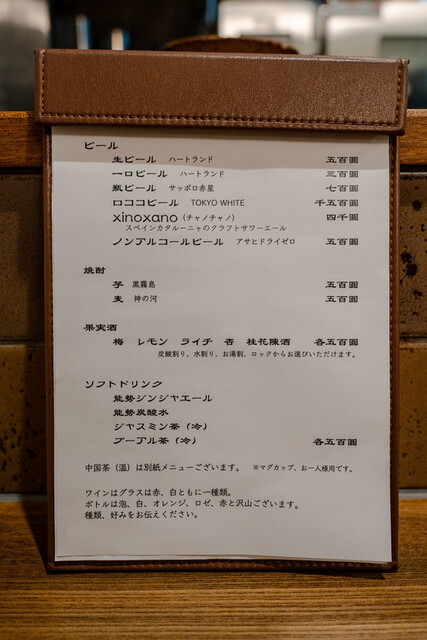 ビール
生ビール ハートランド 五百圓
一口ビール ハートランド 三百圓
瓶ビール サッポロ赤星 七百圓
ロココビール TOKYO WHITE 千五百圓
xinoxano（チャノチャノ） 四千圓
スペインカタルーニャのクラフトサワーエール
ノンアルコールビール アサヒドライゼロ 五百圓
焼酎
芋 黒霧島 五百圓
麦 神の河 五百圓
果実酒
梅 レモン ライチ 杏 桂花陳酒 各五百圓
炭酸割り、水割り、お湯割、ロックからお選びいただけます。
ソフトドリンク
能勢ジンジャエール
能勢炭酸水
ジャスミン茶（冷）
プーアル茶（冷） 各五百圓
中国茶（温）は別紙メニューございます。 ※マグカップ、お一人様用です。
ワインはグラスは赤、白ともに一種類。
ボトルは泡、白、オレンジ、ロゼ、赤と沢山ございます。
種類、好みをお伝えください。